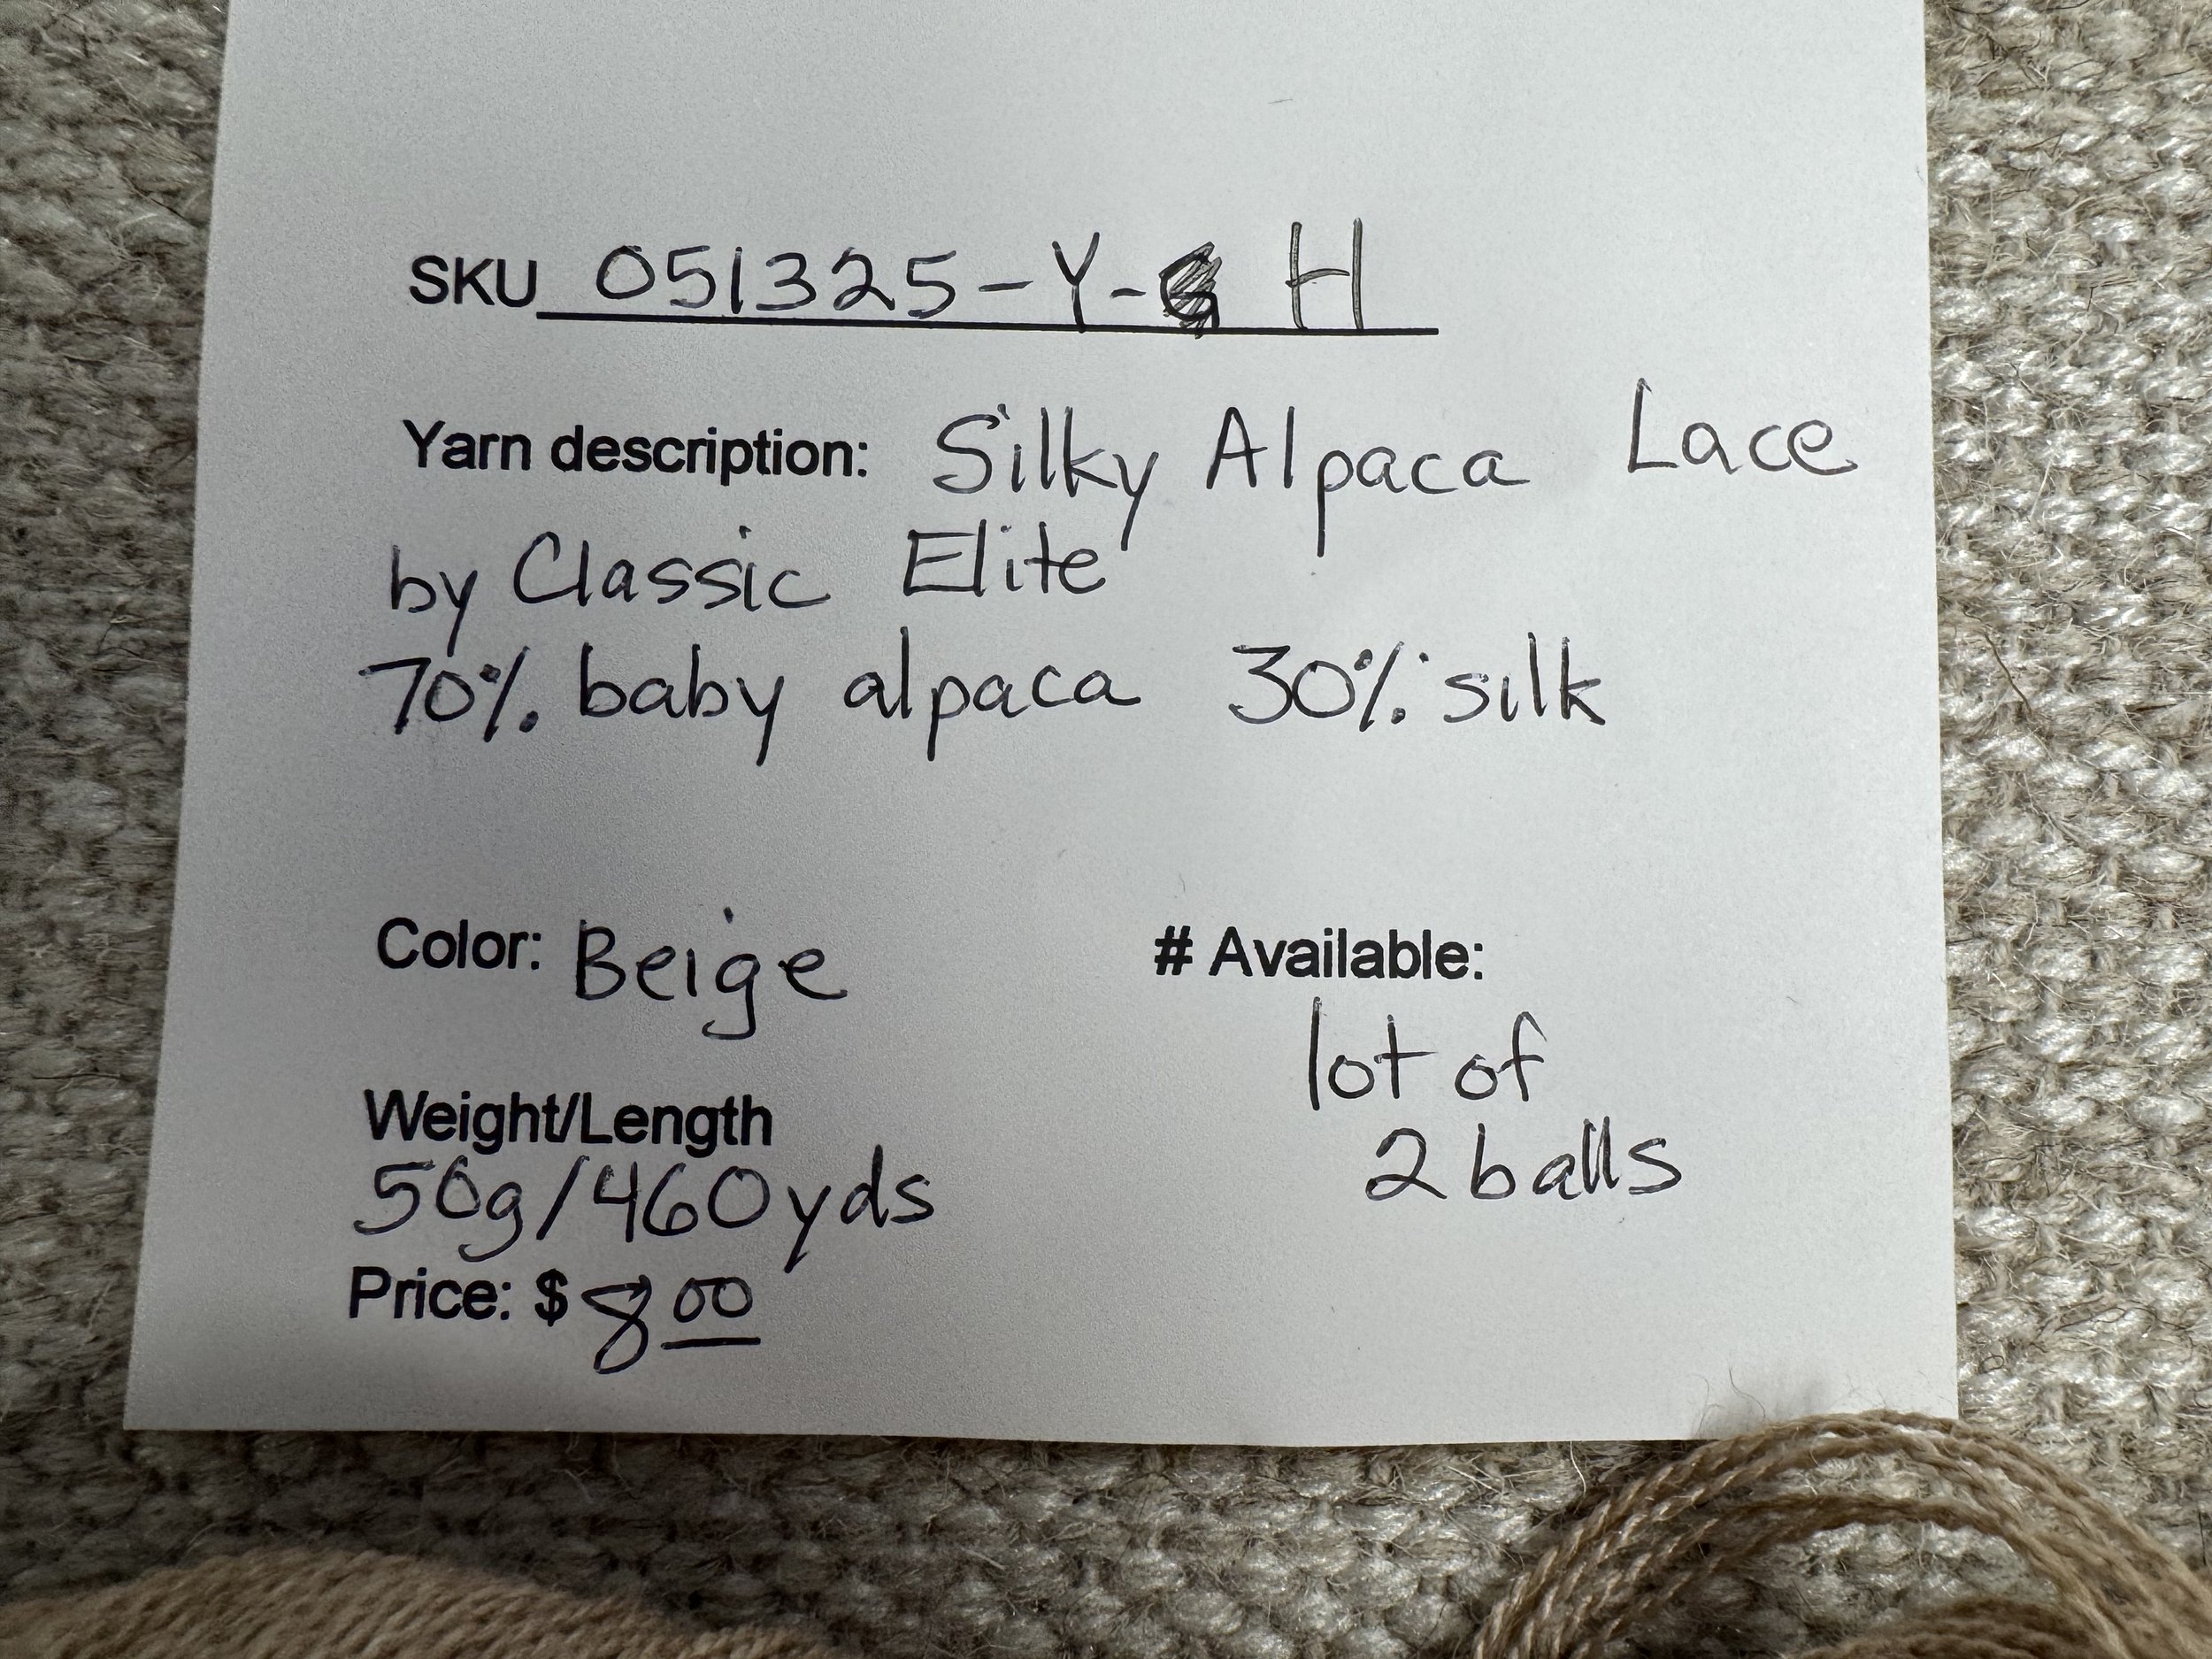 SKU 051325-Y- H
Yarn description: Silky Alpaca Lace
by Classic Elite
70% baby alpaca 30% silk
Color: Beige
# Available:
lot of
2 balls
Weight/Length
50g/460yds
Price: $8.00